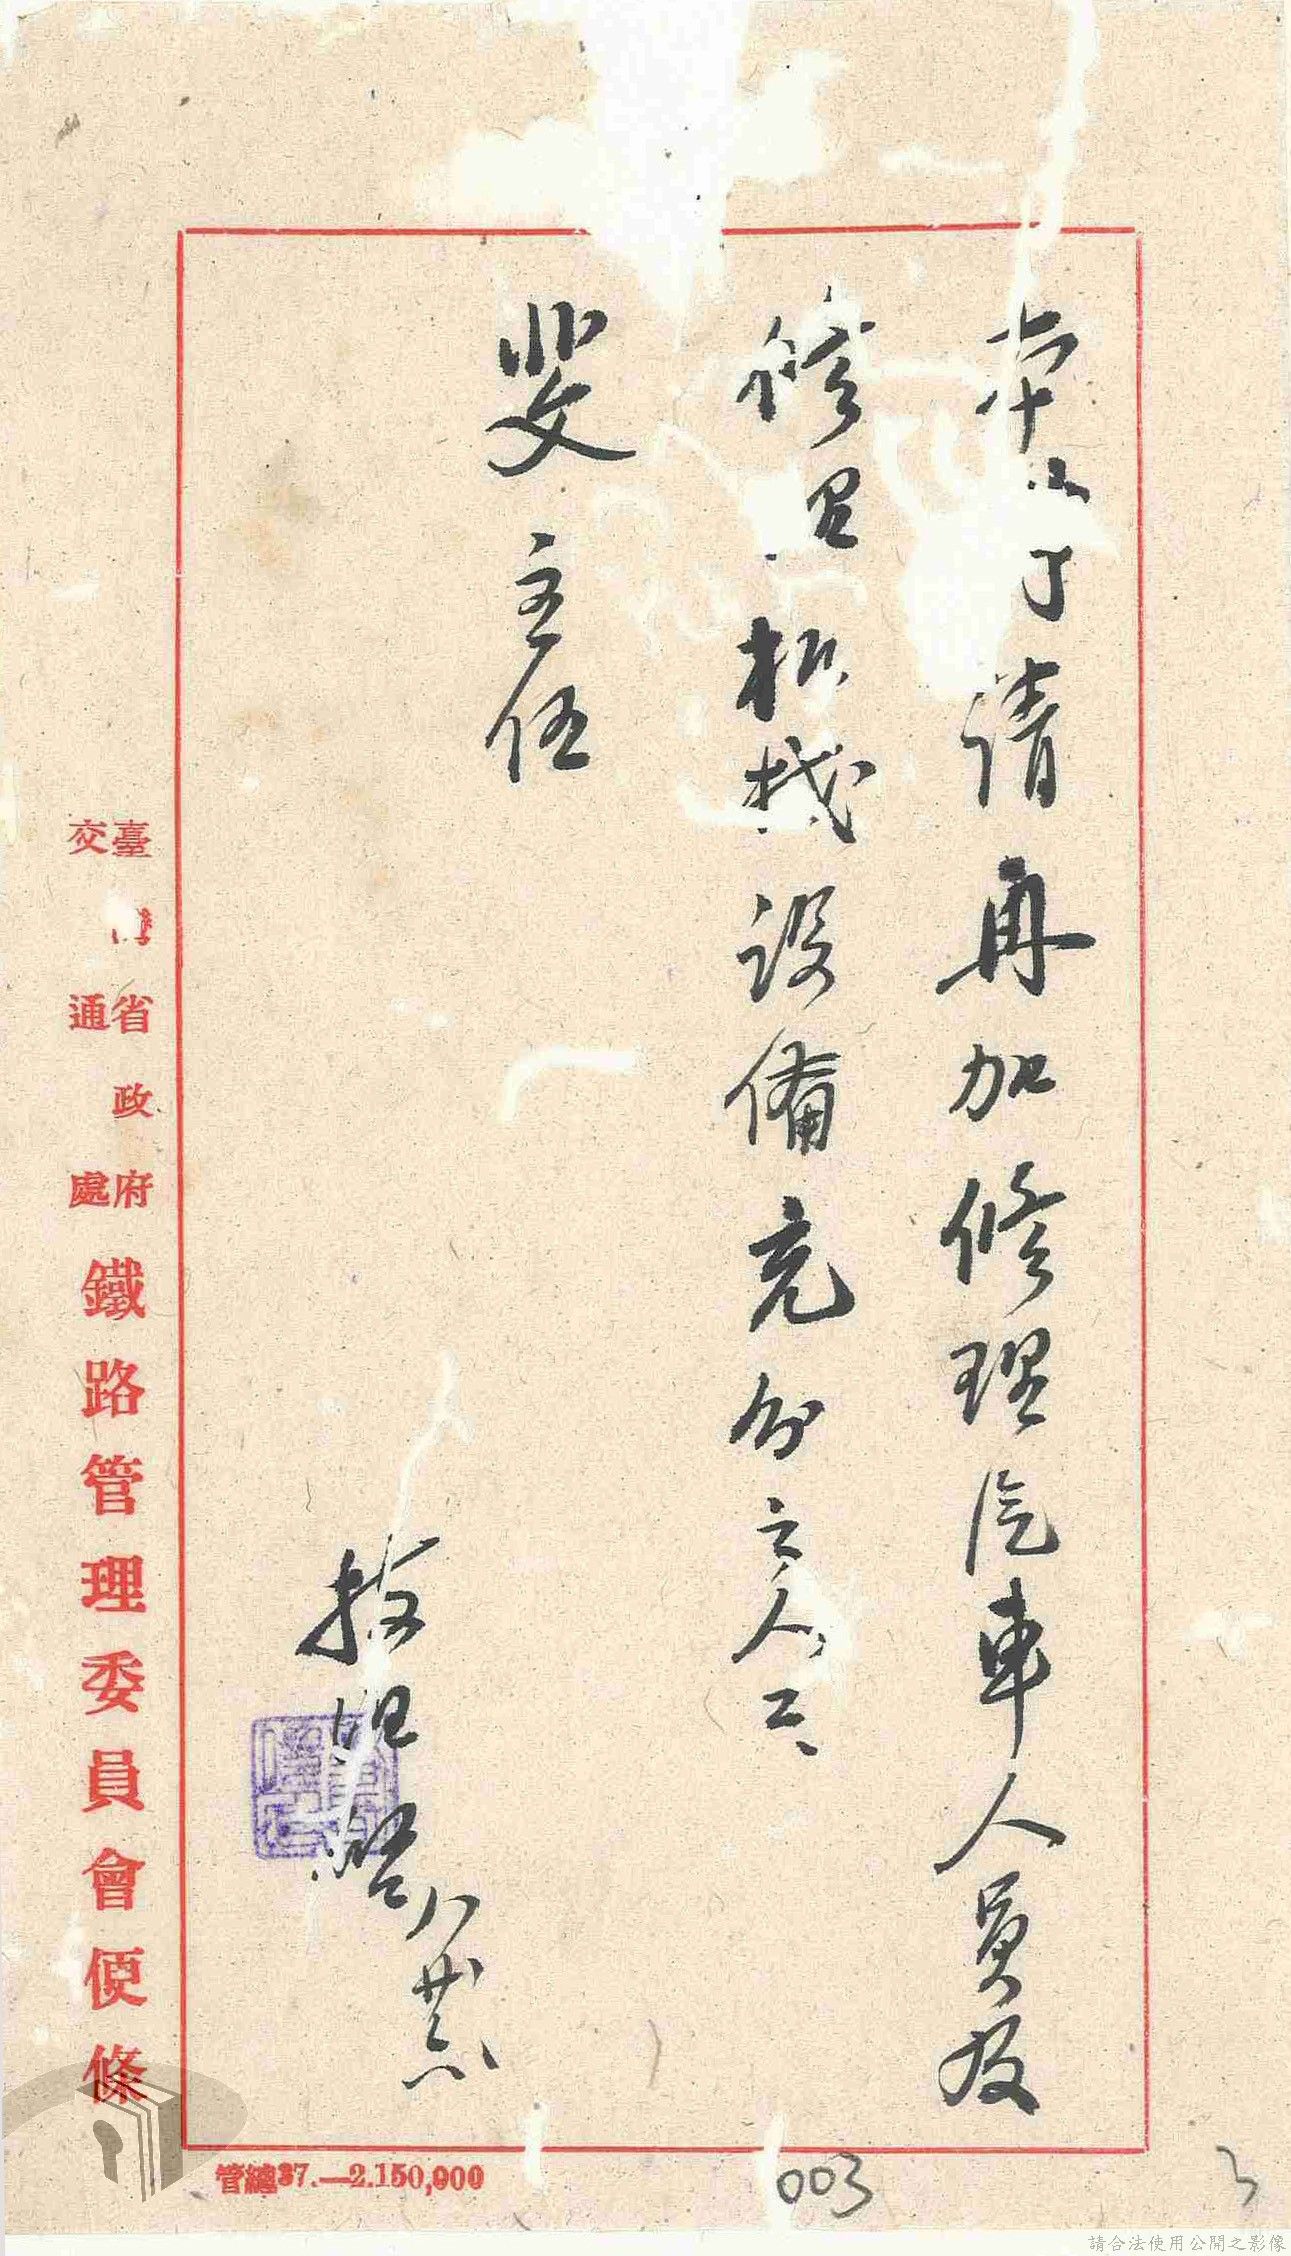 請再加修理汽車人員及
修理機械設備充分之人工
斐主任
啓 八 廿六
臺灣省政府
交通處
鐵路管理委員會便條
管總37.—2.150,000
003
3
請合法使用公開之影像